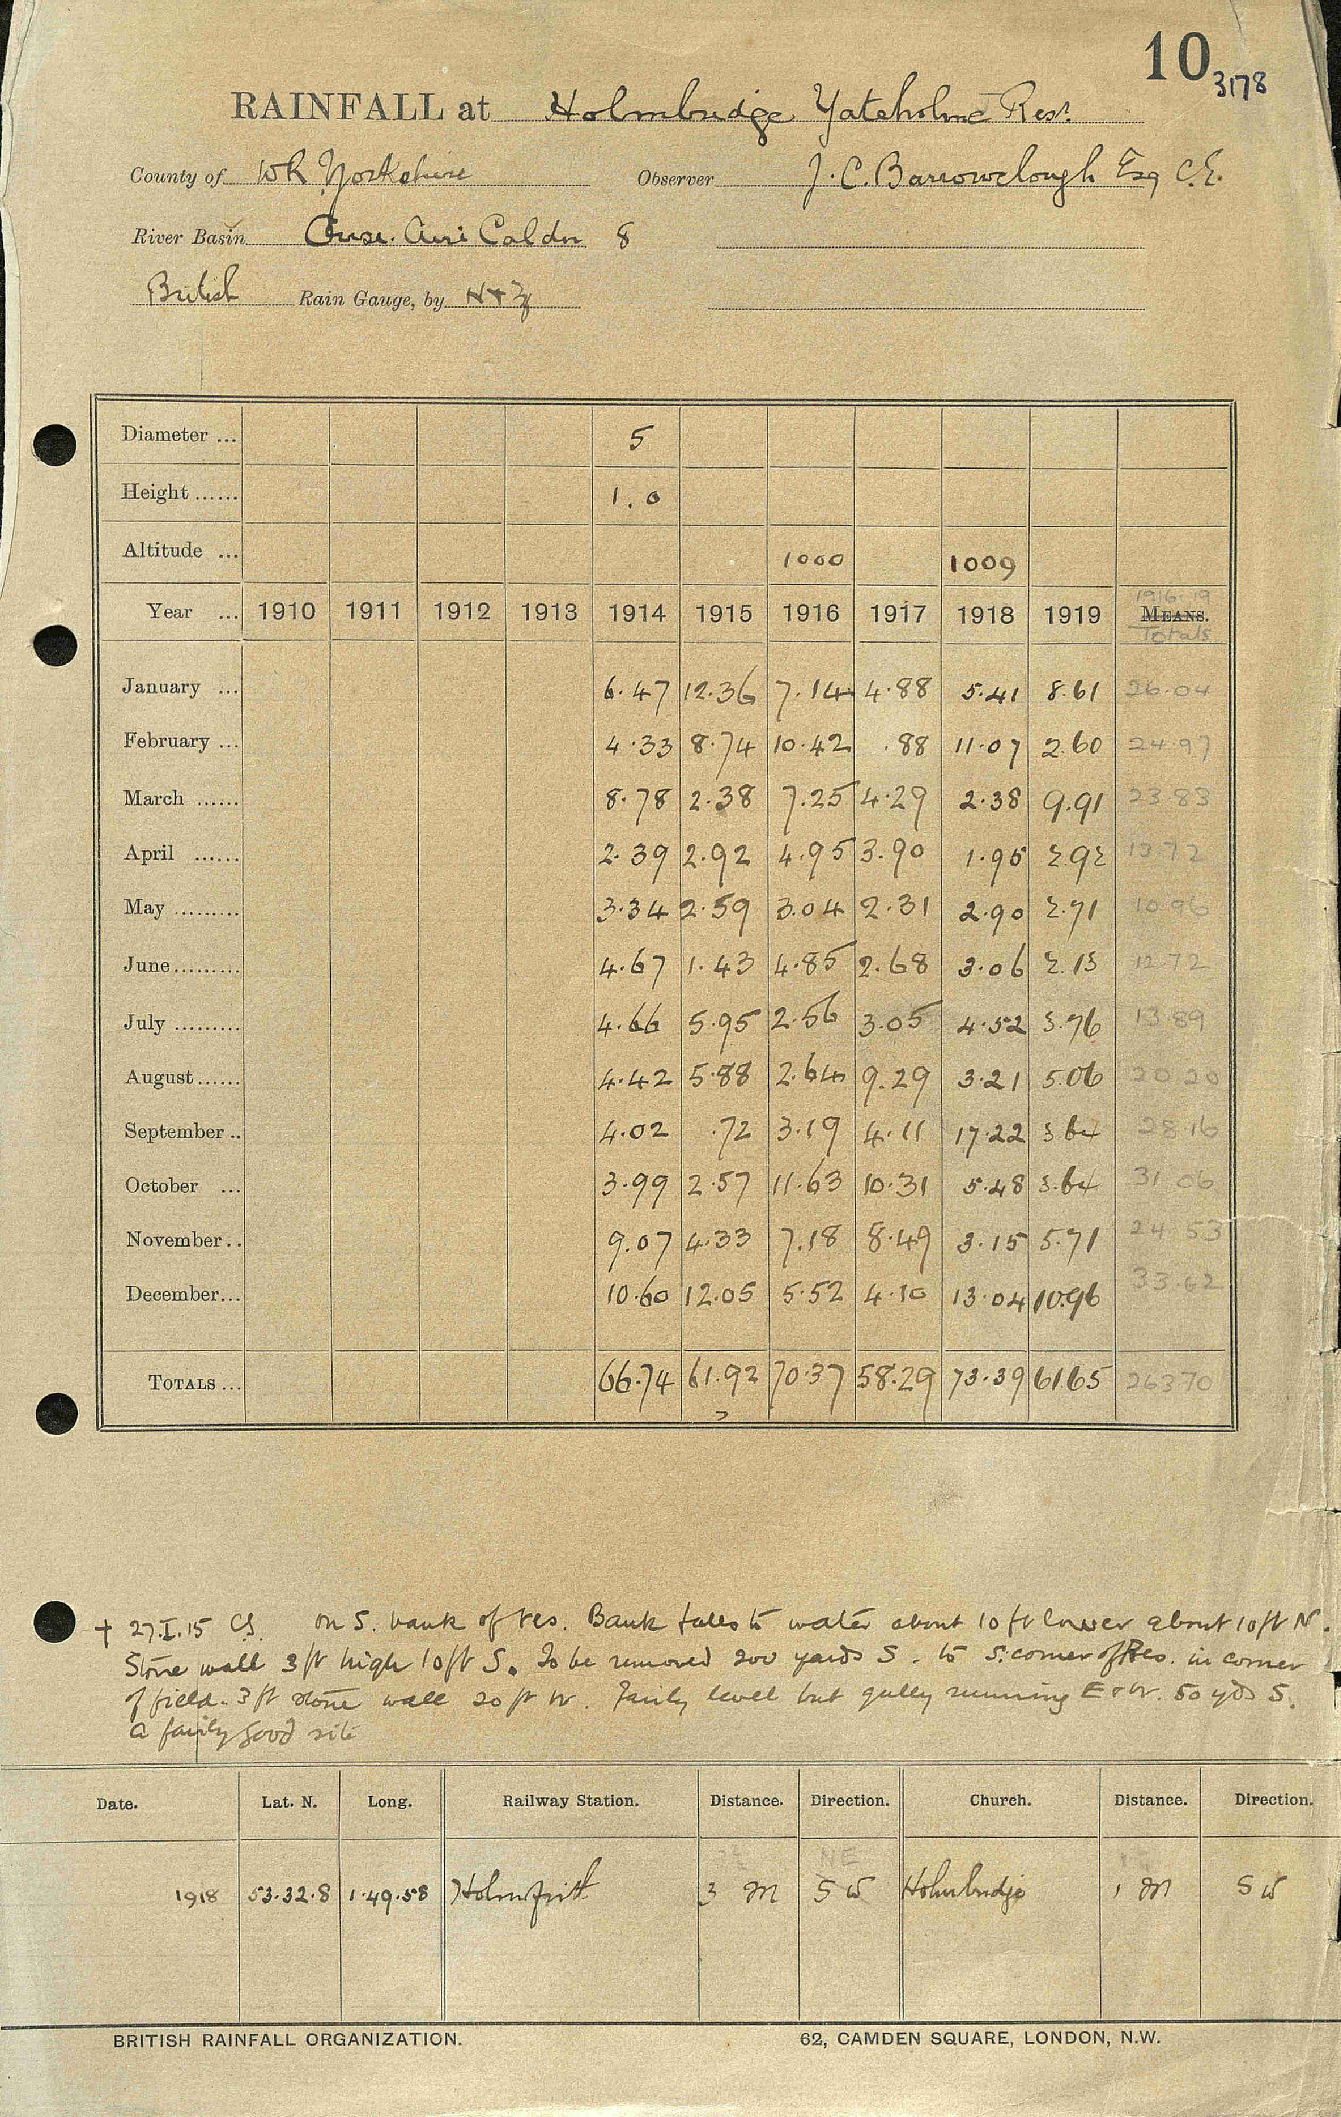 10
3178
RAINFALL at Holmbridge Yateholme Resr.
County of WR Yorkshire Observer J. C. Barrowclough Esq C.E.
River Basin Ouse. Aire Calder 8
British Rain Gauge, by N+Z
Diameter ... 5
Height ...... 1.0
Altitude ... 1000 1009
Year ... 1910 1911 1912 1913 1914 1915 1916 1917 1918 1919 1916-19 MEANS. Totals
January ... 6.47 12.36 7.14 4.88 5.41 8.61 26.04
February ... 4.33 8.74 10.42 .88 11.07 2.60 24.97
March ...... 8.78 2.38 7.25 4.29 2.38 9.91 23.83
April ...... 2.39 2.92 4.95 3.90 1.95 2.92 13.72
May ......... 3.34 2.59 3.04 2.31 2.90 2.71 10.96
June ......... 4.67 1.43 4.85 2.68 3.06 2.13 12.72
July ......... 4.66 5.95 2.56 3.05 4.52 3.76 13.89
August ...... 4.42 5.88 2.64 9.29 3.21 5.06 20.20
September .. 4.02 .72 3.19 4.11 17.22 3.64 28.16
October ... 3.99 2.57 11.63 10.31 5.48 3.64 31.06
November .. 9.07 4.33 7.18 8.49 3.15 5.71 24.53
December ... 10.60 12.05 5.52 4.10 13.04 10.96 33.62
TOTALS ... 66.74 61.92 70.37 58.29 73.39 61.65 263.70
?
+ 27.I.15 CS. on S. bank of res. Bank falls to water about 10 ft lower about 10 ft N.
Stone wall 3 ft high 10 ft S. To be removed 200 yards S. to S. corner of Res. in corner
of field. 3 ft stone wall 20 ft W. Fairly level but gully running E & W. 50 yds S.
A fairly good site
Date. Lat. N. Long. Railway Station. Distance. Direction. Church. Distance. Direction.
NE
1918 53.32.8 1.49.58 Holmfirth 3 M SW Holmbridge 1 M SW
BRITISH RAINFALL ORGANIZATION. 62, CAMDEN SQUARE, LONDON, N.W.